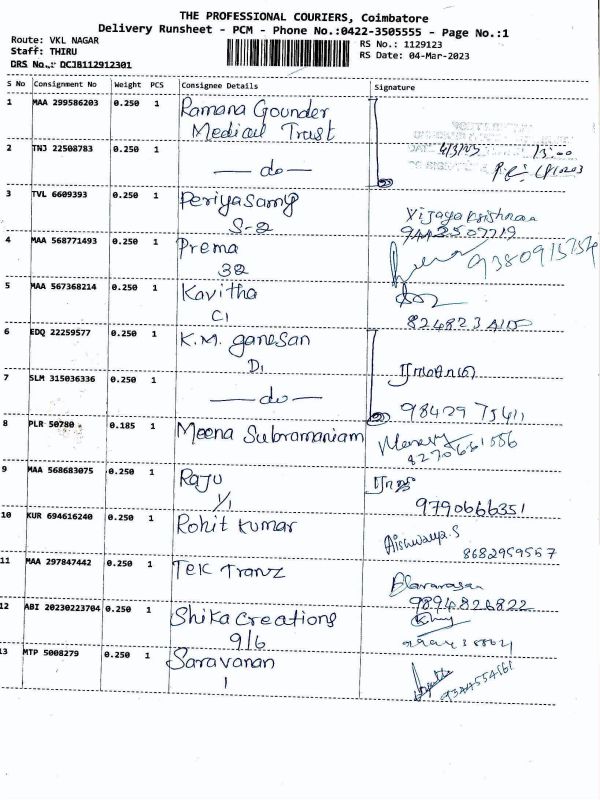 THE PROFESSIONAL COURIERS, Coimbatore
Delivery Runsheet - PCM - Phone No.:0422-3505555 - Page No.:1
Route: VKL NAGAR
Staff: THIRU
DRS No.: DCJB112912301
RS No.: 1129123
RS Date: 04-Mar-2023
S No Consignment No Weight PCS Consignee Details Signature
1 MAA 299586203 0.250 1 Ramana Gounder
Medical Trust
2 TNJ 22508783 0.250 1 — do — 4/3/23 13:00
3 TVL 6609393 0.250 1 Periyasamy
S-2
Vijaya Krishnan
9442507719
4 MAA 568771493 0.250 1 Prema
32
5 MAA 567368214 0.250 1 Kavitha
C1
6 EDQ 22259577 0.250 1 K.M. ganesan
D1
7 SLM 315036336 0.250 1 — do —
98429 75411
8 PLR 50780 0.185 1 Meena Subramaniam
9 MAA 568683075 0.250 1 Raju
1/1
ராஜூ
9790666351
10 KUR 694616240 0.250 1 Rohit Kumar
Aishwarya.S
8682959557
11 MAA 297847442 0.250 1 Tek Tranz
9894826822
12 ABI 20230223704 0.250 1 Shika Creations
9/6
13 MTP 5008279 0.250 1 Saravanan
1
9344554161